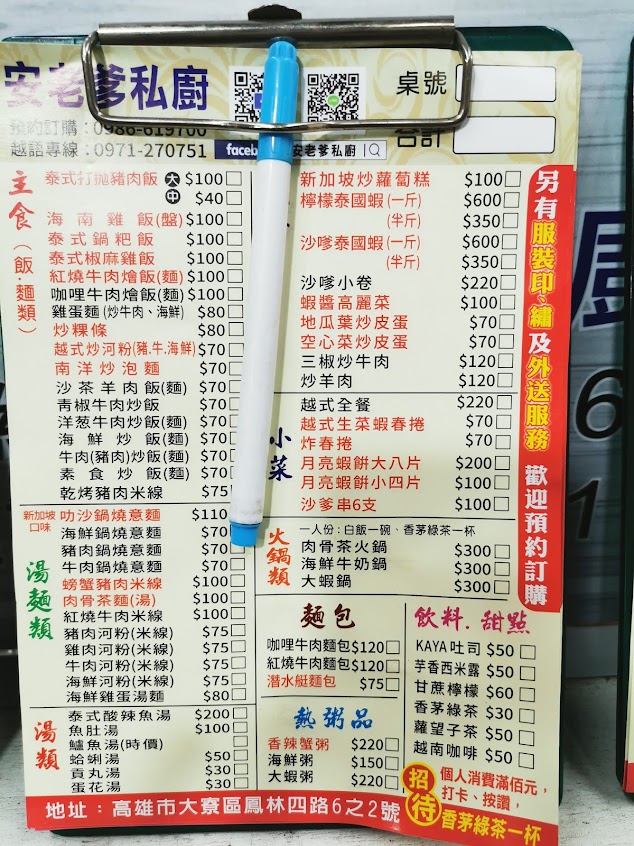 安老爹私廚
預約訂購：0986-619700
越語專線：0971-270751
安老爹私廚
桌號
合計
主食（飯.麵類）
泰式打拋豬肉飯 大 $100
中 $40
海南雞飯(盤) $100
泰式鍋粑飯 $100
泰式椒麻雞飯 $100
紅燒牛肉燴飯(麵) $100
咖哩牛肉燴飯(麵) $100
雞蛋麵(炒牛肉、海鮮) $80
炒粿條 $80
越式炒河粉(豬.牛.海鮮) $70
南洋炒泡麵 $70
沙茶羊肉飯(麵) $70
青椒牛肉炒飯 $70
洋葱牛肉炒飯(麵) $70
海鮮炒飯(麵) $70
牛肉(豬肉)炒飯(麵) $70
素食炒飯(麵) $70
乾烤豬肉米線 $75
湯麵類
新加坡口味 叻沙鍋燒意麵 $110
海鮮鍋燒意麵 $70
豬肉鍋燒意麵 $70
牛肉鍋燒意麵 $70
螃蟹豬肉米線 $100
肉骨茶麵(湯) $100
紅燒牛肉米線 $100
豬肉河粉(米線) $75
雞肉河粉(米線) $75
牛肉河粉(米線) $75
海鮮河粉(米線) $75
海鮮雞蛋湯麵 $80
湯類
泰式酸辣魚湯 $200
魚肚湯 $100
鱸魚湯(時價)
蛤蜊湯 $50
貢丸湯 $30
蛋花湯 $30
新加坡炒蘿蔔糕 $100
檸檬泰國蝦(一斤) $600
(半斤) $350
沙嗲泰國蝦(一斤) $600
(半斤) $350
沙嗲小卷 $220
蝦醬高麗菜 $100
地瓜葉炒皮蛋 $70
空心菜炒皮蛋 $70
三椒炒牛肉 $120
炒羊肉 $120
小菜
越式全餐 $220
越式生菜蝦春捲 $70
炸春捲 $70
月亮蝦餅大八片 $200
月亮蝦餅小四片 $100
沙爹串6支 $100
火鍋類
一人份:白飯一碗、香茅綠茶一杯
肉骨茶火鍋 $300
海鮮牛奶鍋 $300
大蝦鍋 $300
麵包
咖哩牛肉麵包 $120
紅燒牛肉麵包 $120
潛水艇麵包 $75
熱粥品
香辣蟹粥 $220
海鮮粥 $150
大蝦粥 $220
飲料.甜點
KAYA吐司 $50
芋香西米露 $50
甘蔗檸檬 $60
香茅綠茶 $30
蘿望子茶 $50
越南咖啡 $50
招待
個人消費滿佰元，
打卡、按讚，
香茅綠茶一杯
另有服裝印、繡及外送服務 歡迎預約訂購
地址：高雄市大寮區鳳林四路6之2號